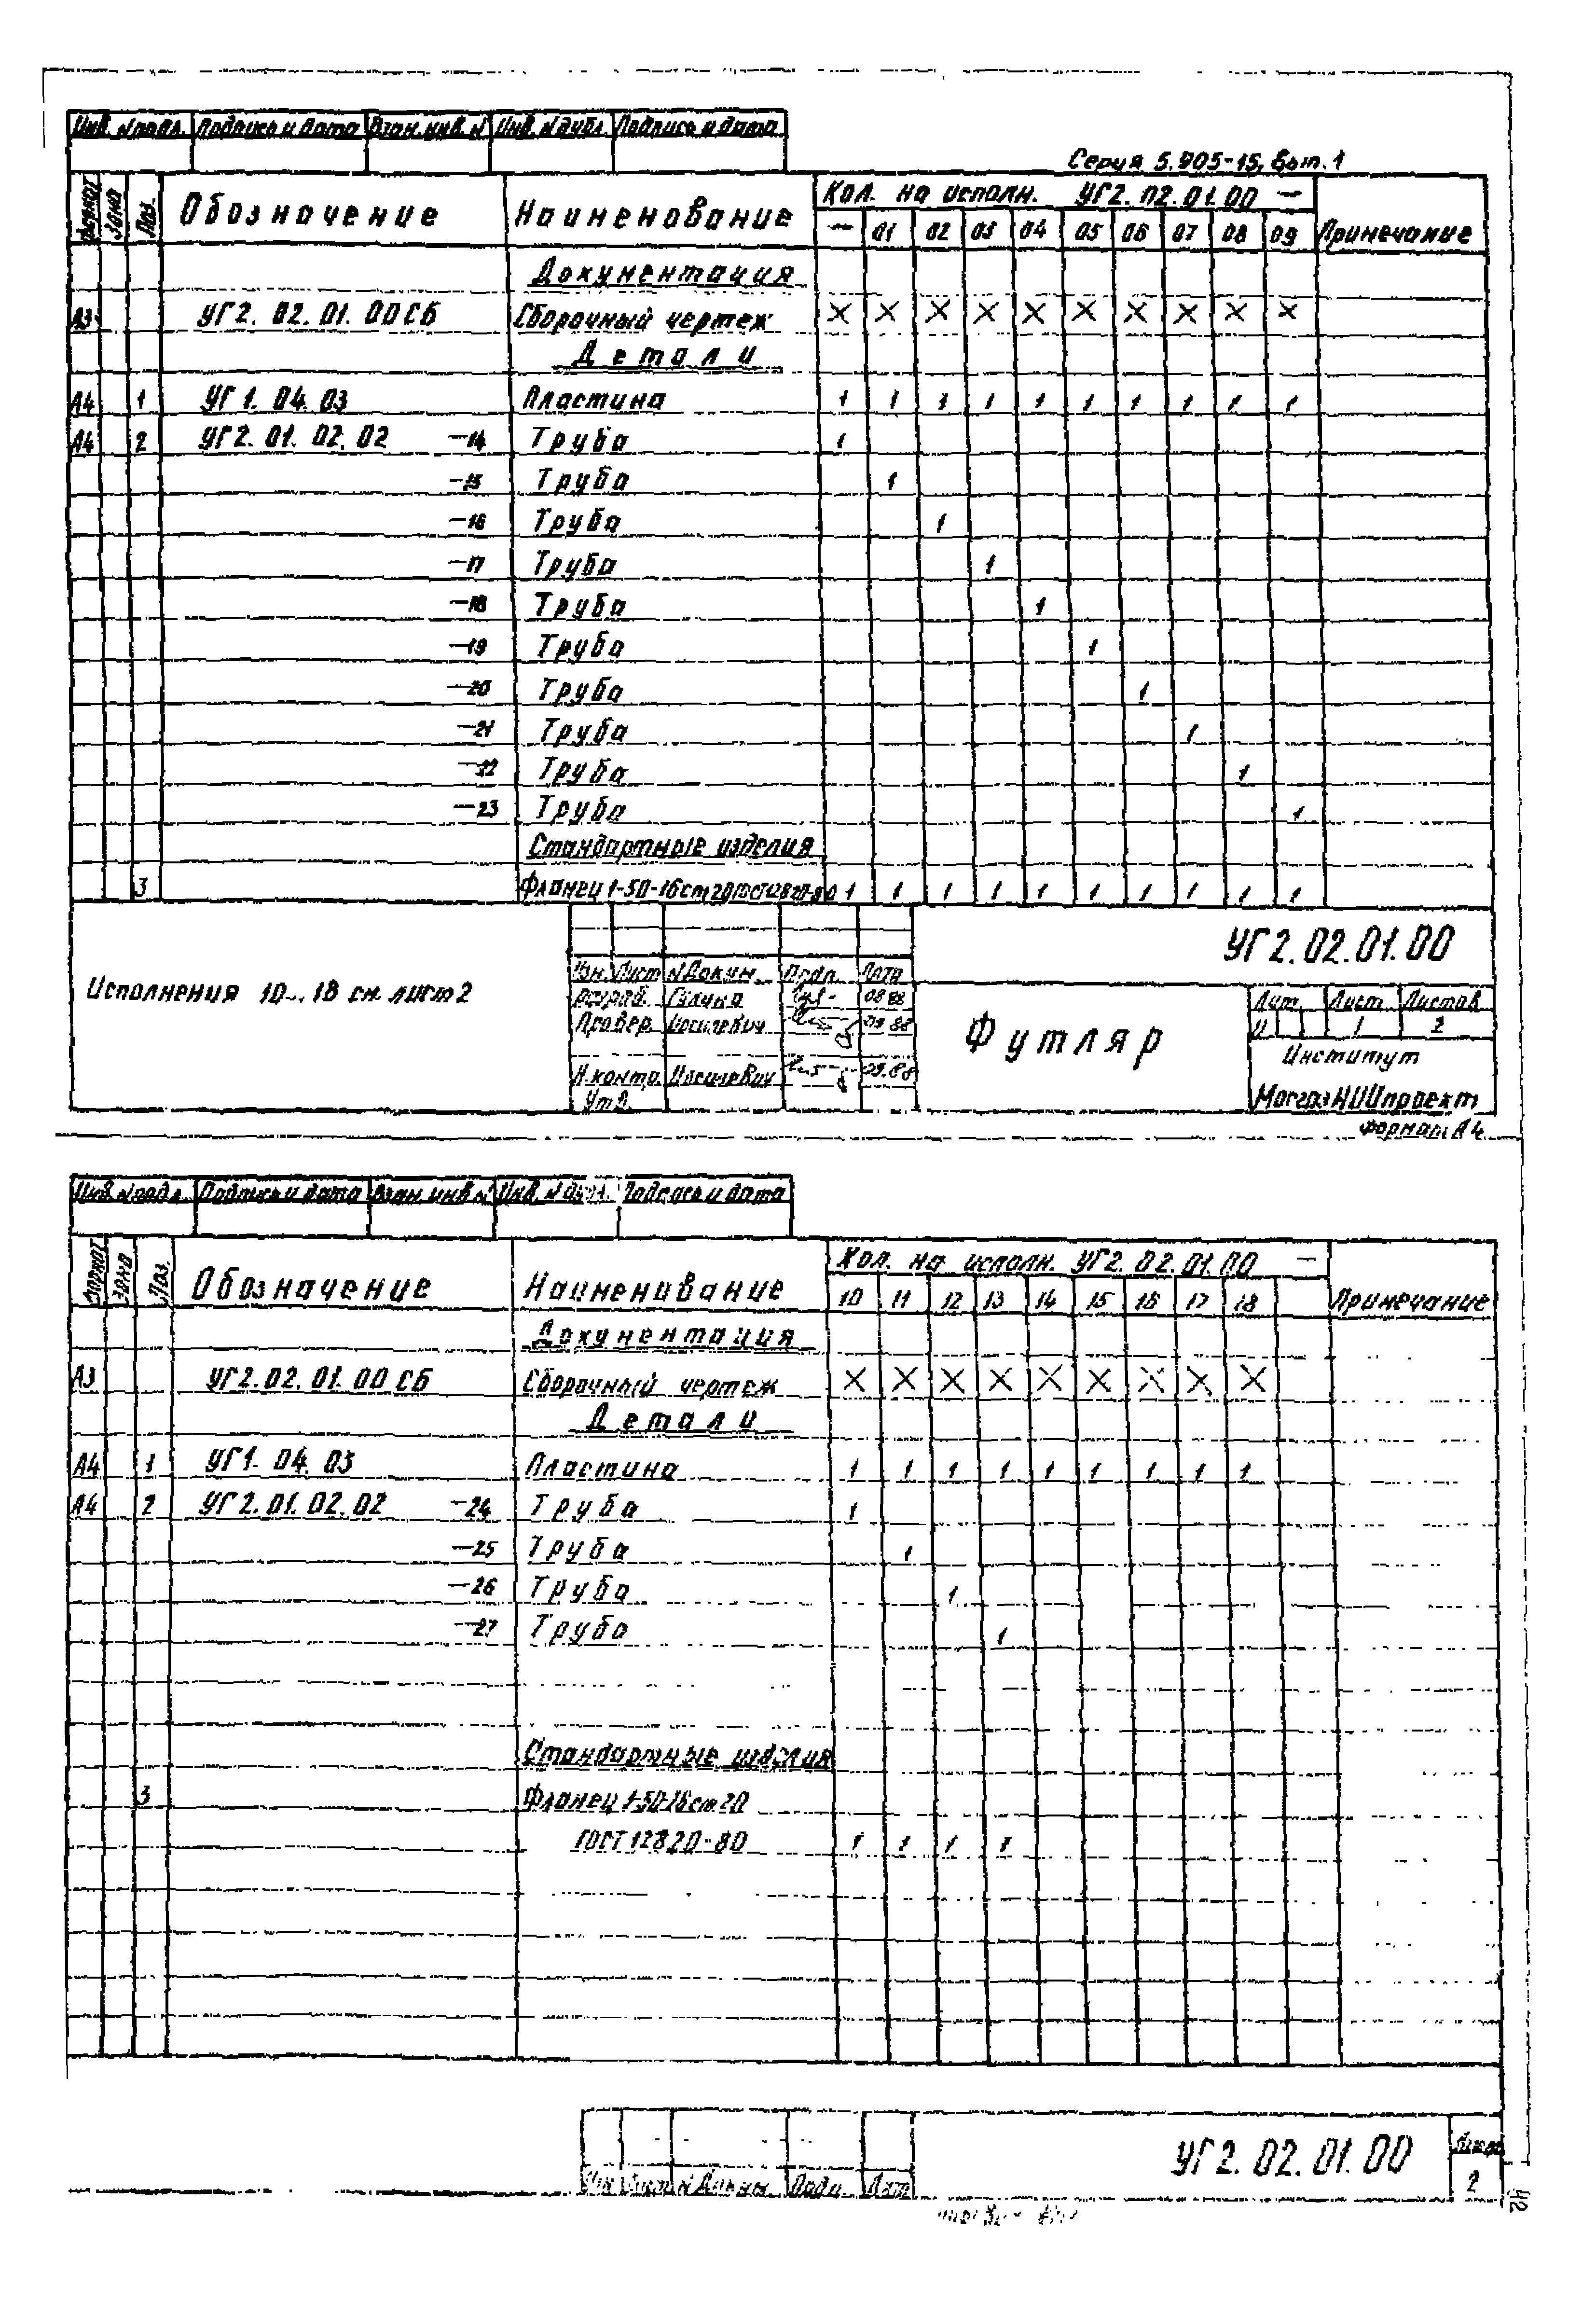 Инв. № подл. Подпись и дата Взам. инв. № Инв. № дубл. Подпись и дата
Серия 5.905-15, вып. 1
Формат Зона Поз. Обозначение Наименование Кол. на исполн. УГ2.02.01.00 — Примечание
— 01 02 03 04 05 06 07 08 09
Документация
А3 УГ2.02.01.00 СБ Сборочный чертеж X X X X X X X X X X
Детали
А4 1 УГ1.04.03 Пластина 1 1 1 1 1 1 1 1 1 1
А4 2 УГ2.01.02.02 —14 Труба 1
—15 Труба 1
—16 Труба 1
—17 Труба 1
—18 Труба 1
—19 Труба 1
—20 Труба 1
—21 Труба 1
—22 Труба 1
—23 Труба 1
Стандартные изделия
3 Фланец 1-50-16 ст 20 ГОСТ 12820-80 1 1 1 1 1 1 1 1 1 1
Исполнения 10...18 см. лист 2
УГ2.02.01.00
Изм. Лист № Докум. Подп. Дата
Разраб. Галина 08.88
Провер. Иосилевич 09.88
Н.контр. Иосилевич 09.88
Утв.
Футляр
Лит. Лист Листов
И 1 2
Институт
МосгазНИИпроект
Формат А4
Инв. № подл. Подпись и дата Взам. инв. № Инв. № дубл. Подпись и дата
Формат Зона Поз. Обозначение Наименование Кол. на исполн. УГ2.02.01.00 — Примечание
10 11 12 13 14 15 16 17 18
Документация
А3 УГ2.02.01.00 СБ Сборочный чертеж X X X X X X X X X
Детали
А4 1 УГ1.04.03 Пластина 1 1 1 1 1 1 1 1 1
А4 2 УГ2.01.02.02 —24 Труба 1
—25 Труба 1
—26 Труба 1
—27 Труба 1
Стандартные изделия
3 Фланец 1-50-16 ст 20
ГОСТ 12820-80 1 1 1 1
УГ2.02.01.00
Лист
2
Изм. Лист № Докум. Подп. Дат
42